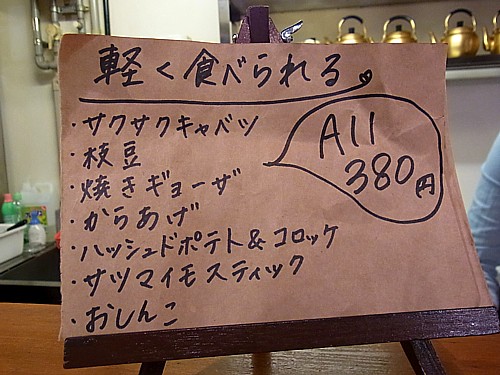 軽く食べられる
・サクサクキャベツ
・枝豆
・焼きギョーザ
・からあげ
・ハッシュドポテト&コロッケ
・サツマイモスティック
・おしんこ
All
380円